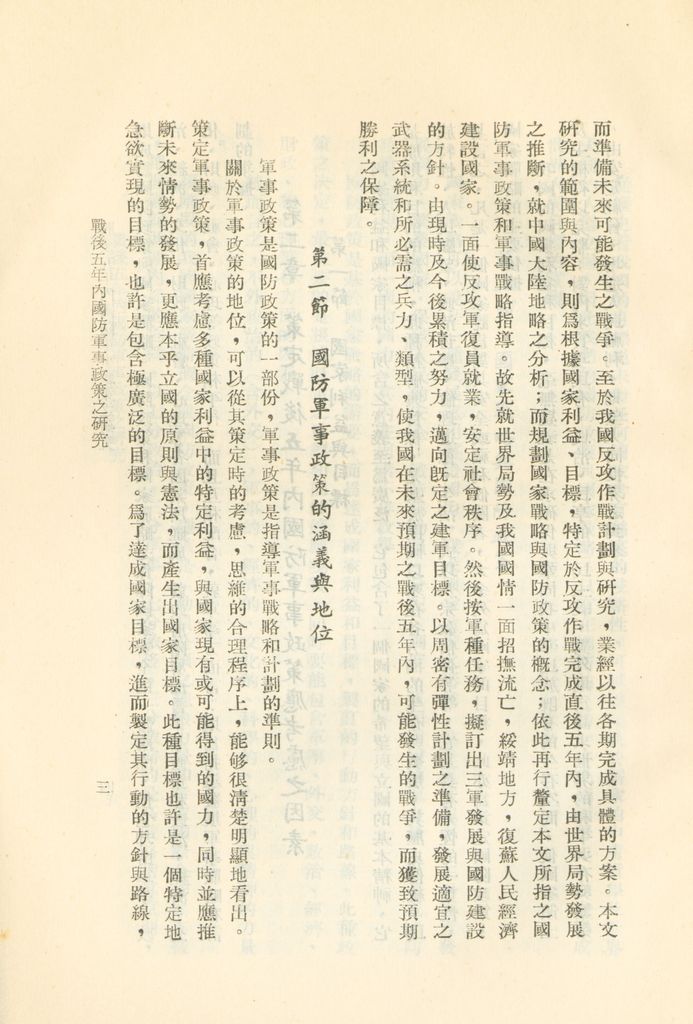 而準備未來可能發生之戰爭。至於我國反攻作戰計劃與研究，業經以往各期完成具體的方案。本文
研究的範圍與內容，則爲根據國家利益、目標，特定於反攻作戰完成直後五年內，由世界局勢發展
之推斷，就中國大陸地略之分析；而規劃國家戰略與國防政策的概念；依此再行釐定本文所指之國
防軍事政策和軍事戰略指導。故先就世界局勢及我國國情一面招撫流亡，綏靖地方，復蘇人民經濟
建設國家。一面使反攻軍復員就業，安定社會秩序。然後按軍種任務，擬訂出三軍發展與國防建設
的方針。由現時及今後累積之努力，邁向旣定之建軍目標。以周密有彈性計劃之準備，發展適宜之
武器系統和所必需之兵力、類型，使我國在未來預期之戰後五年內，可能發生的戰爭，而獲致預期
勝利之保障。
第二節　國防軍事政策的涵義與地位
軍事政策是國防政策的一部份，軍事政策是指導軍事戰略和計劃的準則。
關於軍事政策的地位，可以從其策定時的考慮，思維的合理程序上，能够很清楚明顯地看出。
策定軍事政策，首應考慮多種國家利益中的特定利益，與國家現有或可能得到的國力，同時並應推
斷未來情勢的發展，更應本乎立國的原則與憲法，而產生出國家目標。此種目標也許是一個特定地
急欲實現的目標，也許是包含極廣泛的目標。爲了達成國家目標，進而製定其行動的方針與路線，
戰後五年內國防軍事政策之研究
三